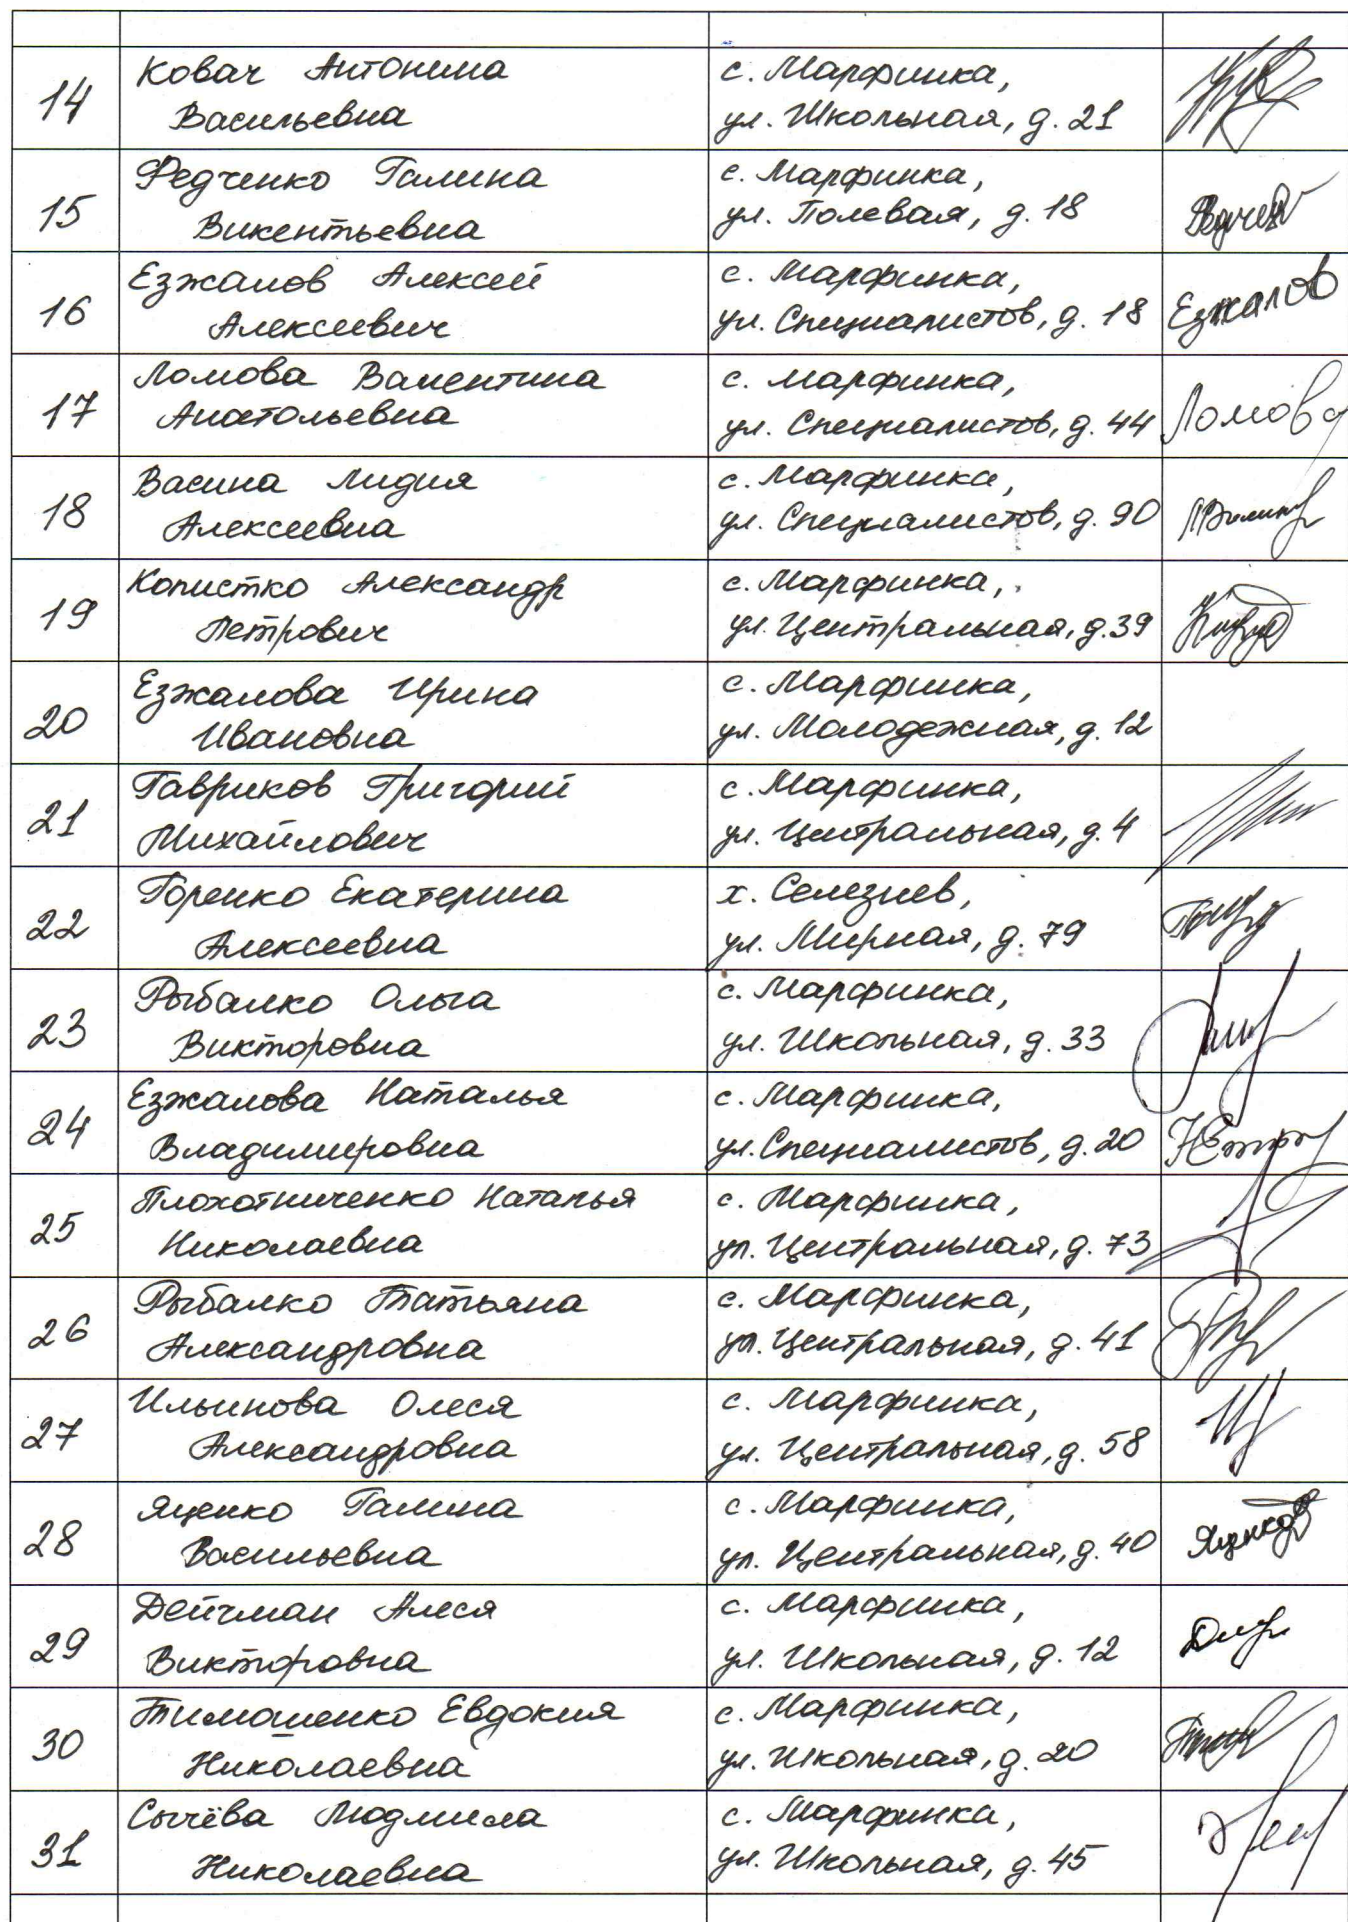 14
Ковач Антонина
Васильевна
с. Марфинка,
ул. Школьная, д. 21
15
Федченко Галина
Викентьевна
с. Марфинка,
ул. Полевая, д. 18
16
Езжалов Алексей
Алексеевич
с. Марфинка,
ул. Специалистов, д. 18
Езжалов
17
Ломова Валентина
Анатольевна
с. Марфинка,
ул. Специалистов, д. 44
Ломова
18
Васина Лидия
Алексеевна
с. Марфинка,
ул. Специалистов, д. 90
19
Копистко Александр
Петрович
с. Марфинка,
ул. Центральная, д. 39
20
Езжалова Ирина
Ивановна
с. Марфинка,
ул. Молодежная, д. 12
21
Гавриков Григорий
Михайлович
с. Марфинка,
ул. Центральная, д. 4
22
Горенко Екатерина
Алексеевна
х. Селезнев,
ул. Мирная, д. 79
23
Рыбалко Ольга
Викторовна
с. Марфинка,
ул. Школьная, д. 33
24
Езжалова Наталья
Владимировна
с. Марфинка,
ул. Специалистов, д. 20
25
Плохотниченко Наталья
Николаевна
с. Марфинка,
ул. Центральная, д. 73
26
Рыбалко Татьяна
Александровна
с. Марфинка,
ул. Центральная, д. 41
27
Ильинова Олеся
Александровна
с. Марфинка,
ул. Центральная, д. 58
28
Яценко Галина
Васильевна
с. Марфинка,
ул. Центральная, д. 40
29
Дейчман Алеся
Викторовна
с. Марфинка,
ул. Школьная, д. 12
30
Тимошенко Евдокия
Николаевна
с. Марфинка,
ул. Школьная, д. 20
31
Сычёва Людмила
Николаевна
с. Марфинка,
ул. Школьная, д. 45